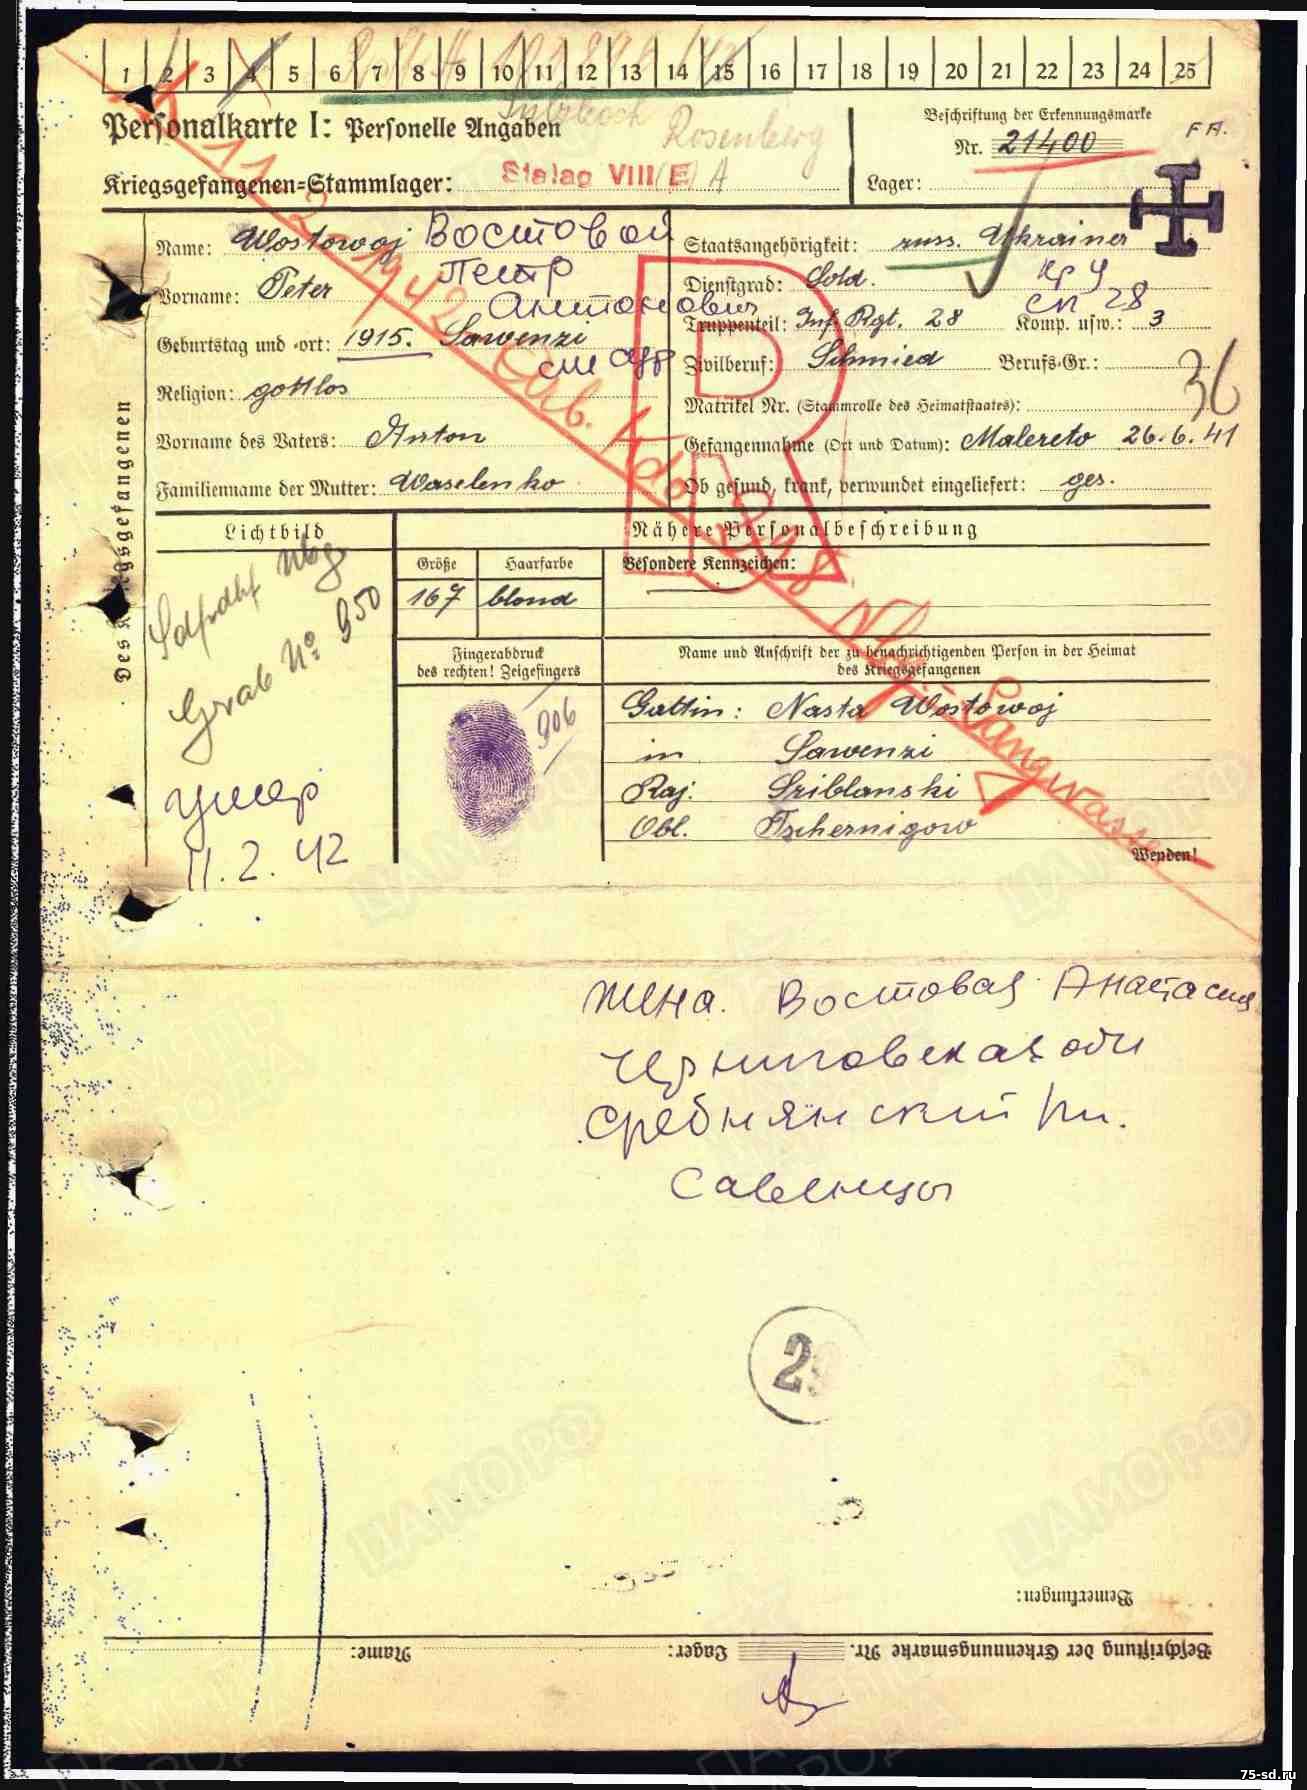 1 2 3 4 5 6 7 8 9 10 11 12 13 14 15 16 17 18 19 20 21 22 23 24 25
Personalkarte I: Personelle Angaben
Rosenberg
Beschriftung der Erkennungsmarke
Nr. 21400
F A.
Kriegsgefangenen-Stammlager: Stalag VIII (E) A
Lager:
Des Kriegsgefangenen
Name: Wostowoj Востовой
Vorname: Peter Петр
Антонович
Geburtstag und -ort: 1915. Sawenzi
Religion: gottlos
Vorname des Vaters: Anton
Familienname der Mutter: Waselenko
Staatsangehörigkeit: russ. Ukrainer
Dienstgrad: Sold.
Кр У
СП 28
Truppenteil: Inf. Rgt. 28 Komp. usw.: 3
Zivilberuf: Schmied Berufs-Gr.:
36
Matrikel Nr. (Stammrolle des Heimatstaates):
Gefangennahme (Ort und Datum): Malereto 26.6.41
Ob gesund, krank, verwundet eingeliefert: ges.
11.2.1942 Arb. Kdo Nbg. Langwasser
R
Lichtbild
Nähere Personalbeschreibung
Größe
Haarfarbe
Besondere Kennzeichen:
167
blond
Grab No. 950
умер
11.2.42
Fingerabdruck
des rechten! Zeigefingers
906
Name und Anschrift der zu benachrichtigenden Person in der Heimat
des Kriegsgefangenen
Gattin: Nasta Wostowoj
in Sawenzi
Raj. Sriblanski
Obl. Tschernigow
Wenden!
Жена. Востовая Анастасия
Черниговская обл
Сребнянский рн.
Савенцы
2
Bemerkungen:
Beschriftung der Erkennungsmarke Nr. Lager: Name:
ЦАМО РФ
75-sd.ru